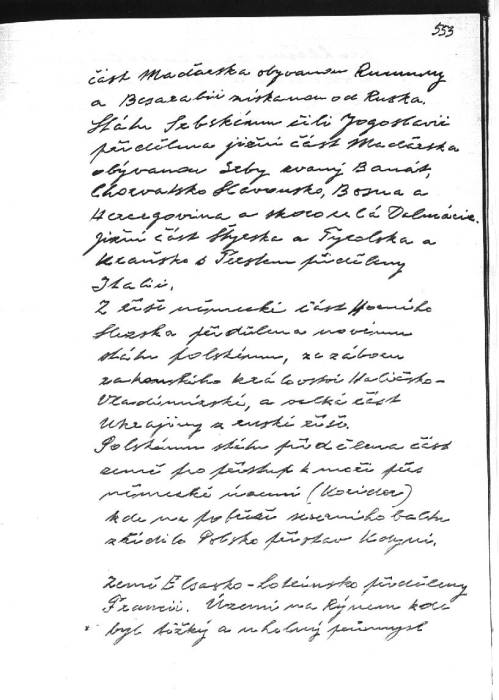 553
část Maďarska obývanou Rumuny
a Besarabii získanou od Ruska.
Státu Srbskému čili Jogoslavii
přidělena jižní část Maďarska
obývanou Srby zvaný Banát,
Chorvatsko Slavonsko, Bosna a
Hercegovina a skoro celá Dalmácie.
Jižní část Štyrska a Tyrolska a
Kraňsko s Terstem přiděleny
Italii.
Z říše německé část Horního
Slezska přidělena novému
státu polskému, ze záboru
rakouského království Haličsko-
Vladimirské, a velká část
Ukrajiny z ruské říše.
Polskému státu přidělena část
země pro přístup k moři přes
německé území (Koridor)
kde na pobřeží severního baltu
zřídilo Polsko přístav Kdyni.
Země Elsasko-Lotrinsko přiděleny
Francii. Území na Rýnem kde
byl těžký a uhelný průmysl